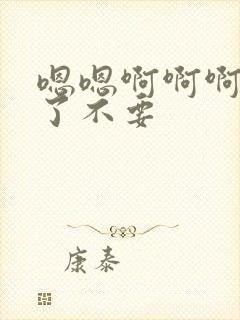 嗯嗯啊啊啊
了不要
康泰